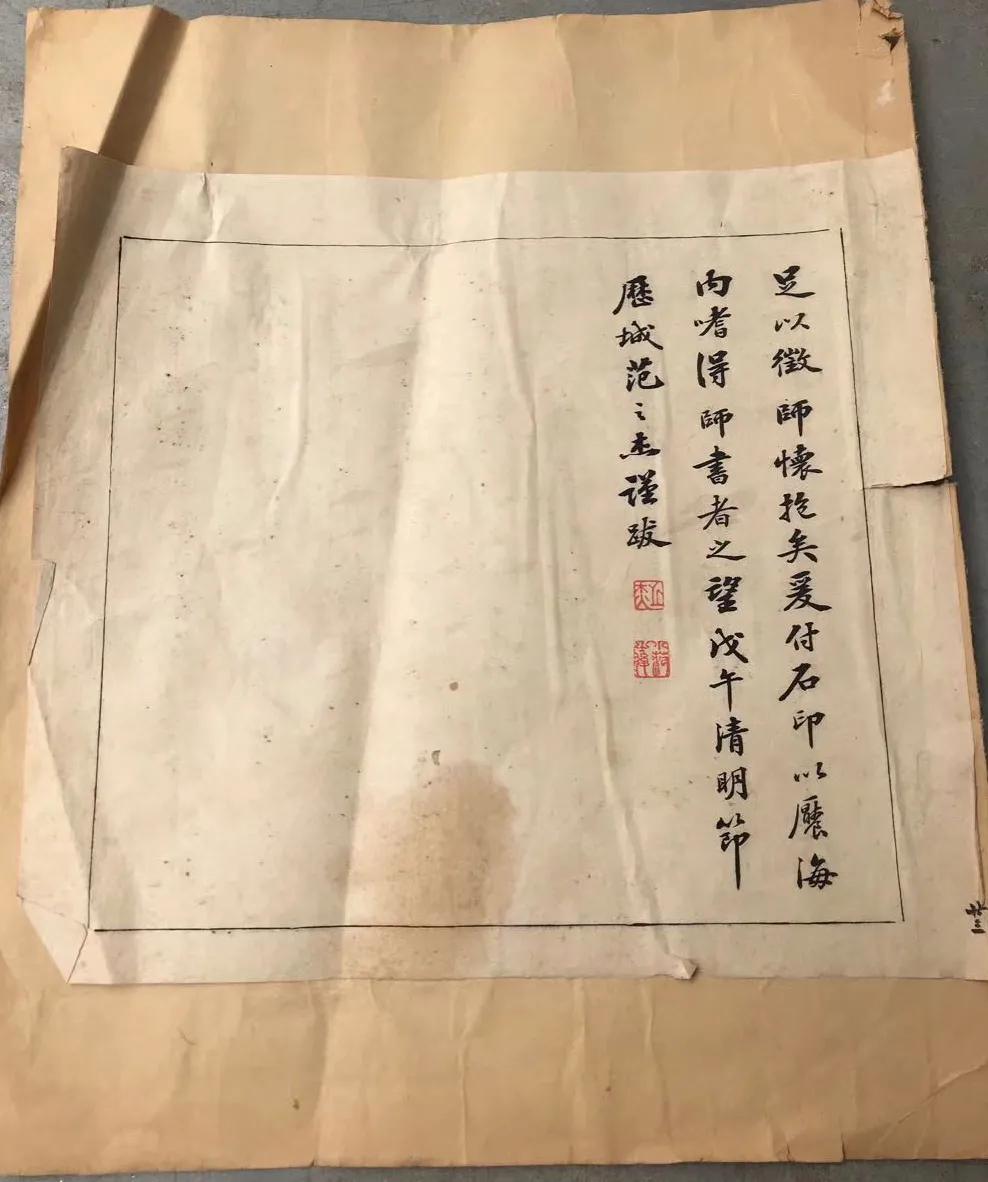 足以徵師懷抱矣爰付石印以饜海
内嗜得師書者之望戊午清明節
歷城范之杰謹跋